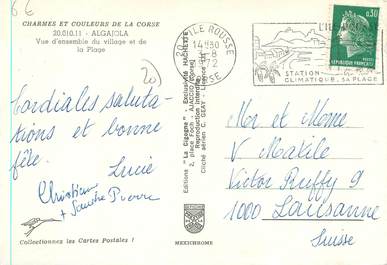 6 E
CHARMES ET COULEURS DE LA CORSE
20.010.11 - ALGAJOLA
Vue d'ensemble du village et de
la Plage
20
Cordiales saluta-
tions et bonne
fête.
Lucie
Christiane
+ Sandra Pierre
Collectionnez les Cartes Postales !
Editions "La Cigogne" - Exclusivité HACHETTE
2, place Foch - AJACCIO (Corse)
Reproduction interdite
Cliché aérien C. GEAY - Licence
MEXICHROME
20 L'ILE ROUSSE
14H30
-8
1972
CORSE
L'ILE
STATION
CLIMATIQUE, SA PLAGE
0,30
REPUBLIQUE FRANCAISE
POSTES
Mr et Mme
V Matile
Victor Ruffy 9
1000 Lausanne
Suisse